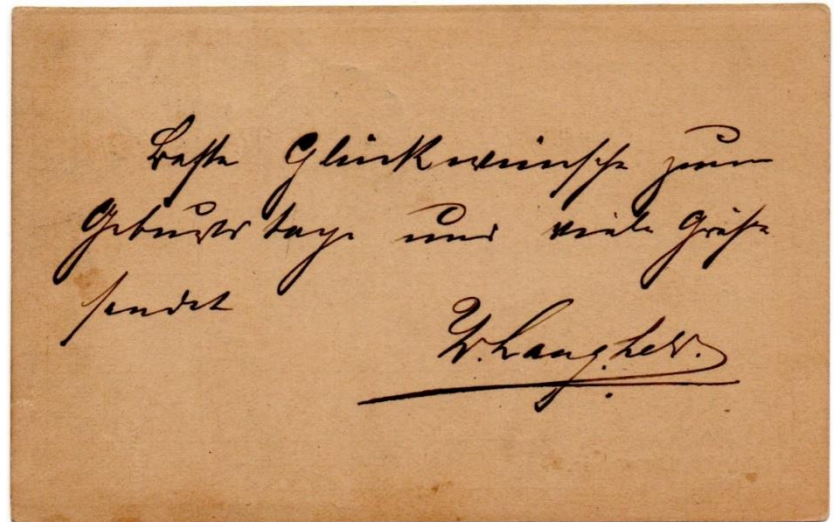 Beste Glückwünsche zum
Geburtstage und viele Grüße
sendet